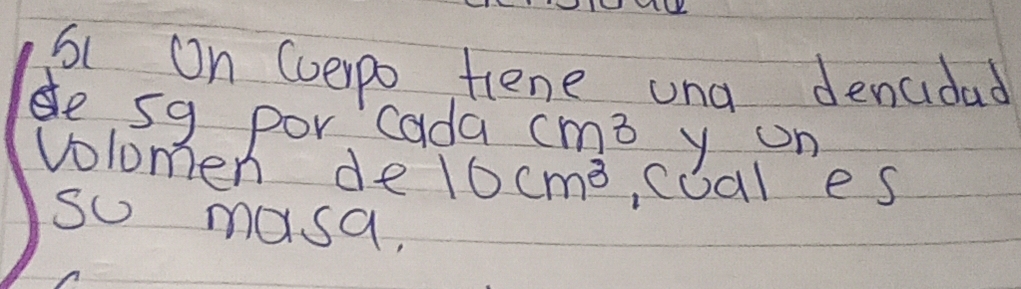 Si Un Cuerpo tiene una dencidad
de 5g por cada cm3 y un
Volomen de 10cm3, cual es
su masa.